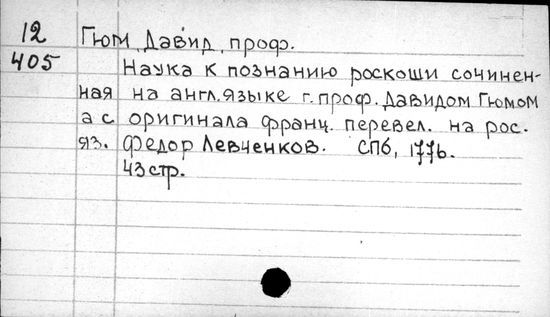 12 Гюм, Давид, проф.
405 Наука к познанию роскоши сочинен-
ная на англ. языке г. проф. Давидом Гюмом
а с оригинала франц. перевел. на рос.
яз. Федор Левченков. СПб, 1776.
43 стр.